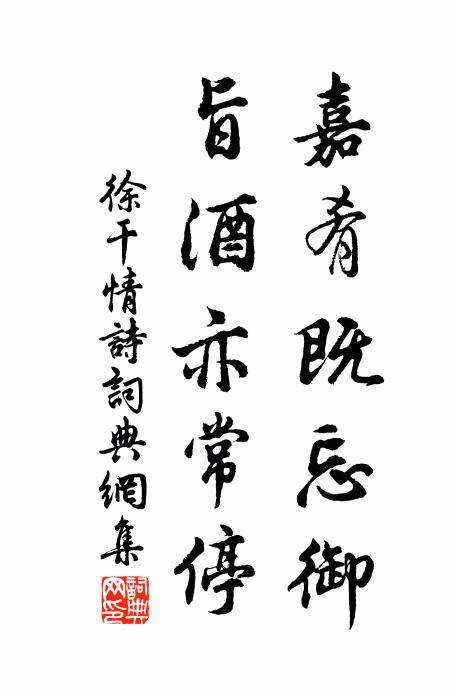 嘉肴既忘御
旨酒亦常停
徐干情詩詞典網集
詞典网印